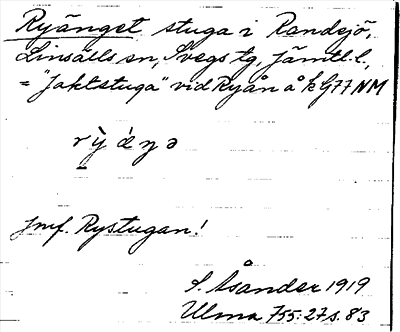 Ryänget stuga i Randsjö,
Linsälls sn, Svegs tg, Jämtl. l.,
= "Jaktstuga" vid Ryån å k G77 NM
Jmf. Rystugan!
S. Åsander 1919
Ulma 755:27 s. 83